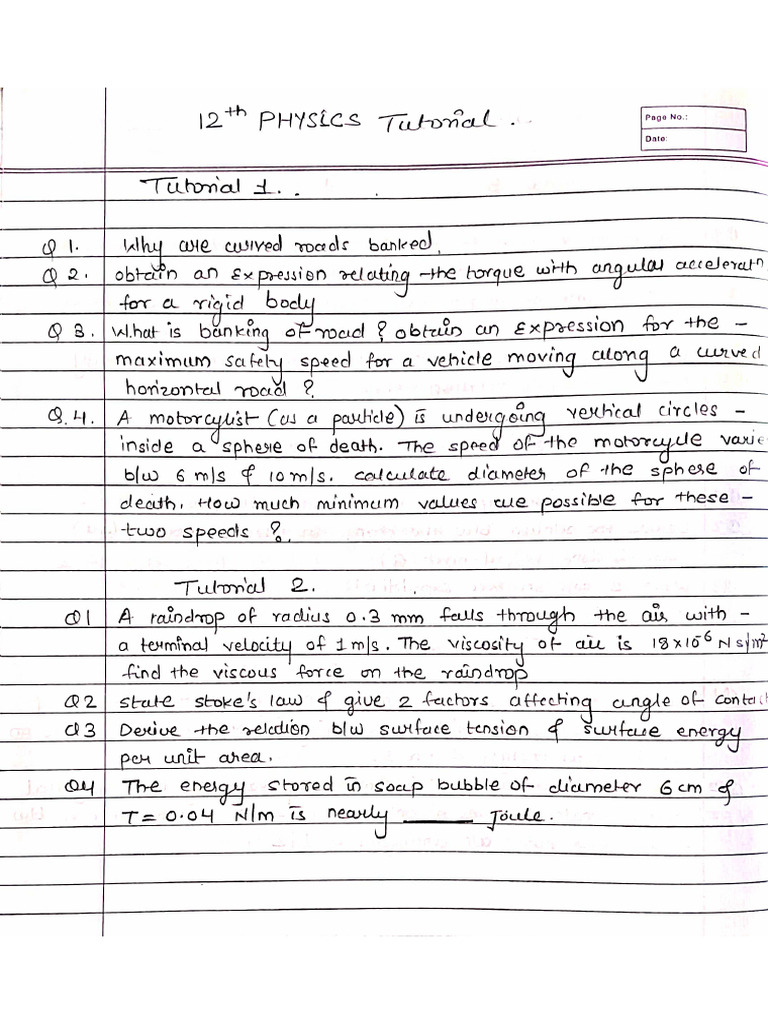 12th PHYSICS Tutorial.
Page No.:
Date:
Tutorial 1.
Q 1. Why are curved roads banked.
Q 2. obtain an Expression relating the torque with angular acceleratn
for a rigid body
Q 3. What is banking of road? obtain an Expression for the -
maximum safety speed for a vehicle moving along a curved
horizontal road?
Q.4. A motorcylist (as a particle) is undergoing vertical circles -
inside a sphere of death. The speed of the motorcycle varie
b/w 6 m/s & 10 m/s. calculate diameter of the sphere of
death. How much minimum values are possible for these -
two speeds?.
Tutorial 2.
Q1 A raindrop of radius 0.3 mm falls through the air with -
a terminal velocity of 1 m/s. The viscosity of air is 18×10⁻⁶ N s/m²
find the viscous force on the raindrop
Q2 state stoke's law & give 2 factors affecting angle of contact
Q3 Derive the relation b/w surface tension & surface energy
per unit area.
Q4 The energy stored in soap bubble of diameter 6 cm &
T = 0.04 N/m is nearly ______ Joule.